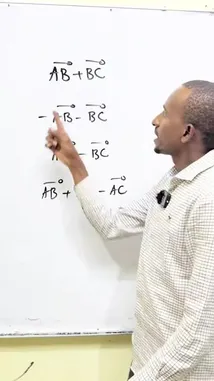 AB + BC
- AB - BC
- BC
AB + - AC